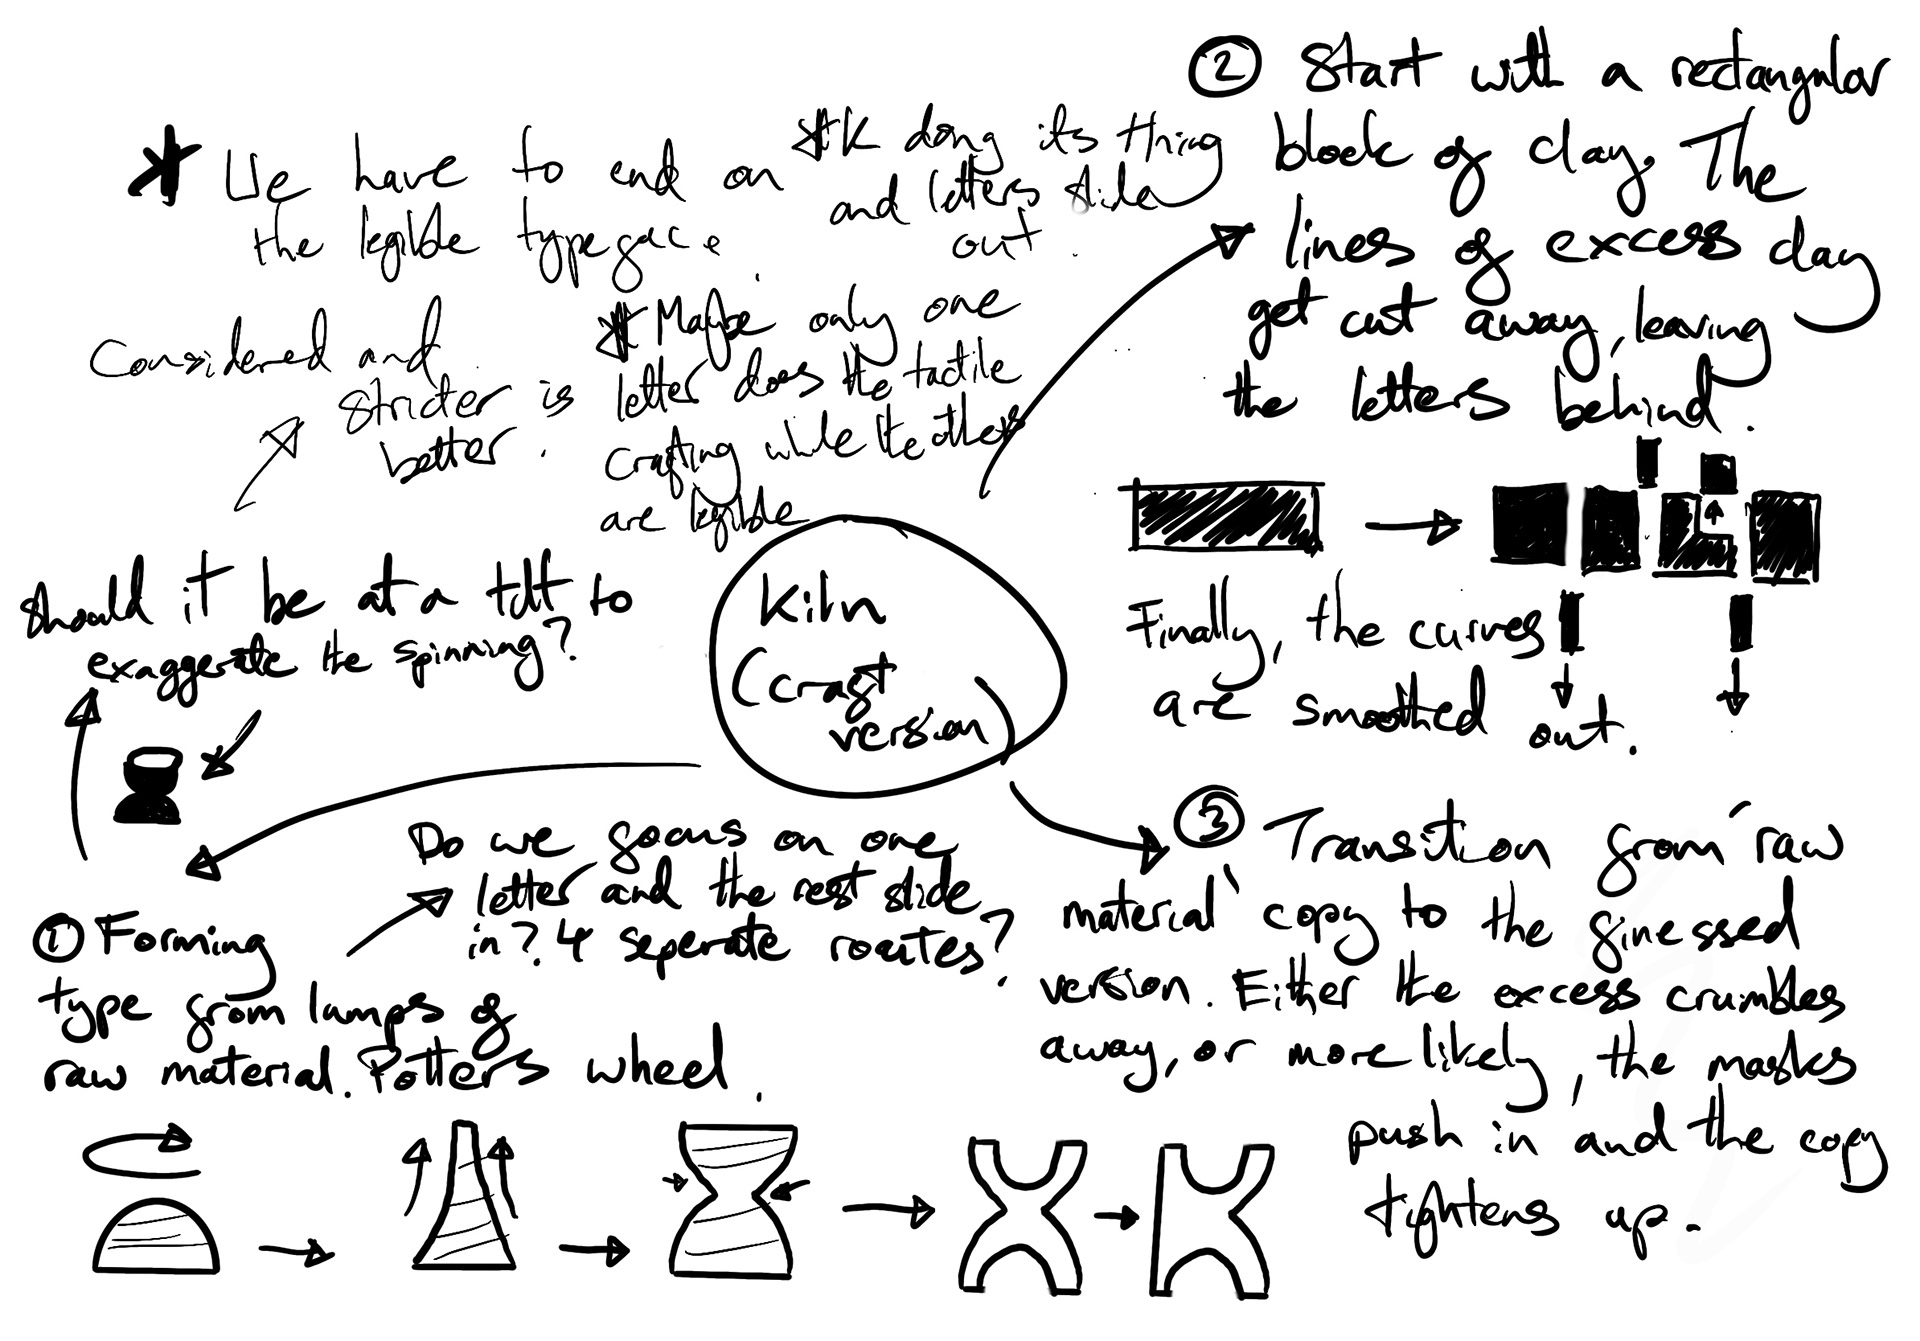 * We have to end on
the legible typeface.
* K doing its thing
and letters slide
out.
Considered and
stricter is
better.
* Maybe only one
letter does the tactile
crafting while the others
are legible
② Start with a rectangular
block of clay. The
lines of excess clay
get cut away, leaving
the letters behind.
Finally, the curves
are smoothed out.
Kiln
(craft
version)
Should it be at a tilt to
exaggerate the spinning?
Do we focus on one
letter and the rest slide
in? 4 seperate routes?
① Forming
type from lumps of
raw material. Potters wheel.
③ Transition from 'raw
material' copy to the finessed
version. Either the excess crumbles
away, or more likely, the masks
push in and the copy
tightens up.